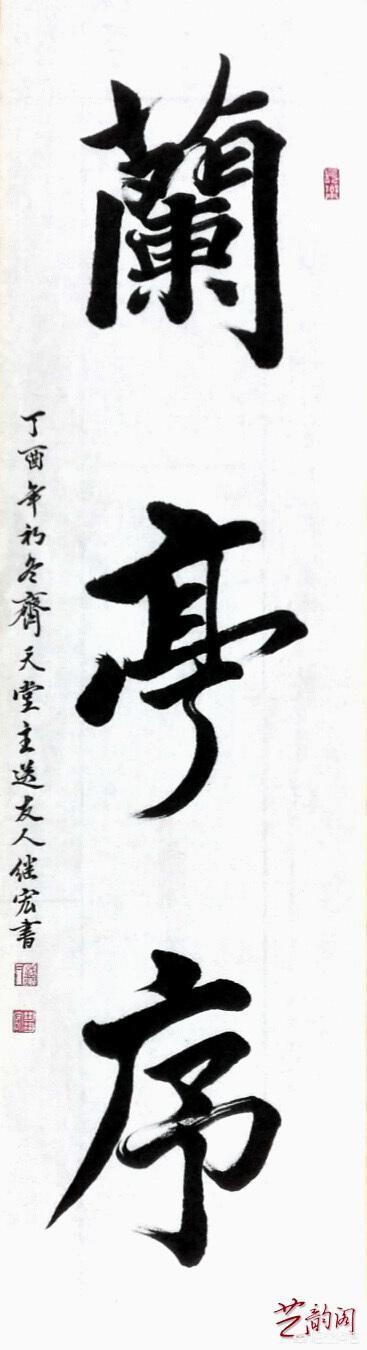 蘭亭序
丁酉年初冬齊天堂主送友人继宏書
艺韵阁